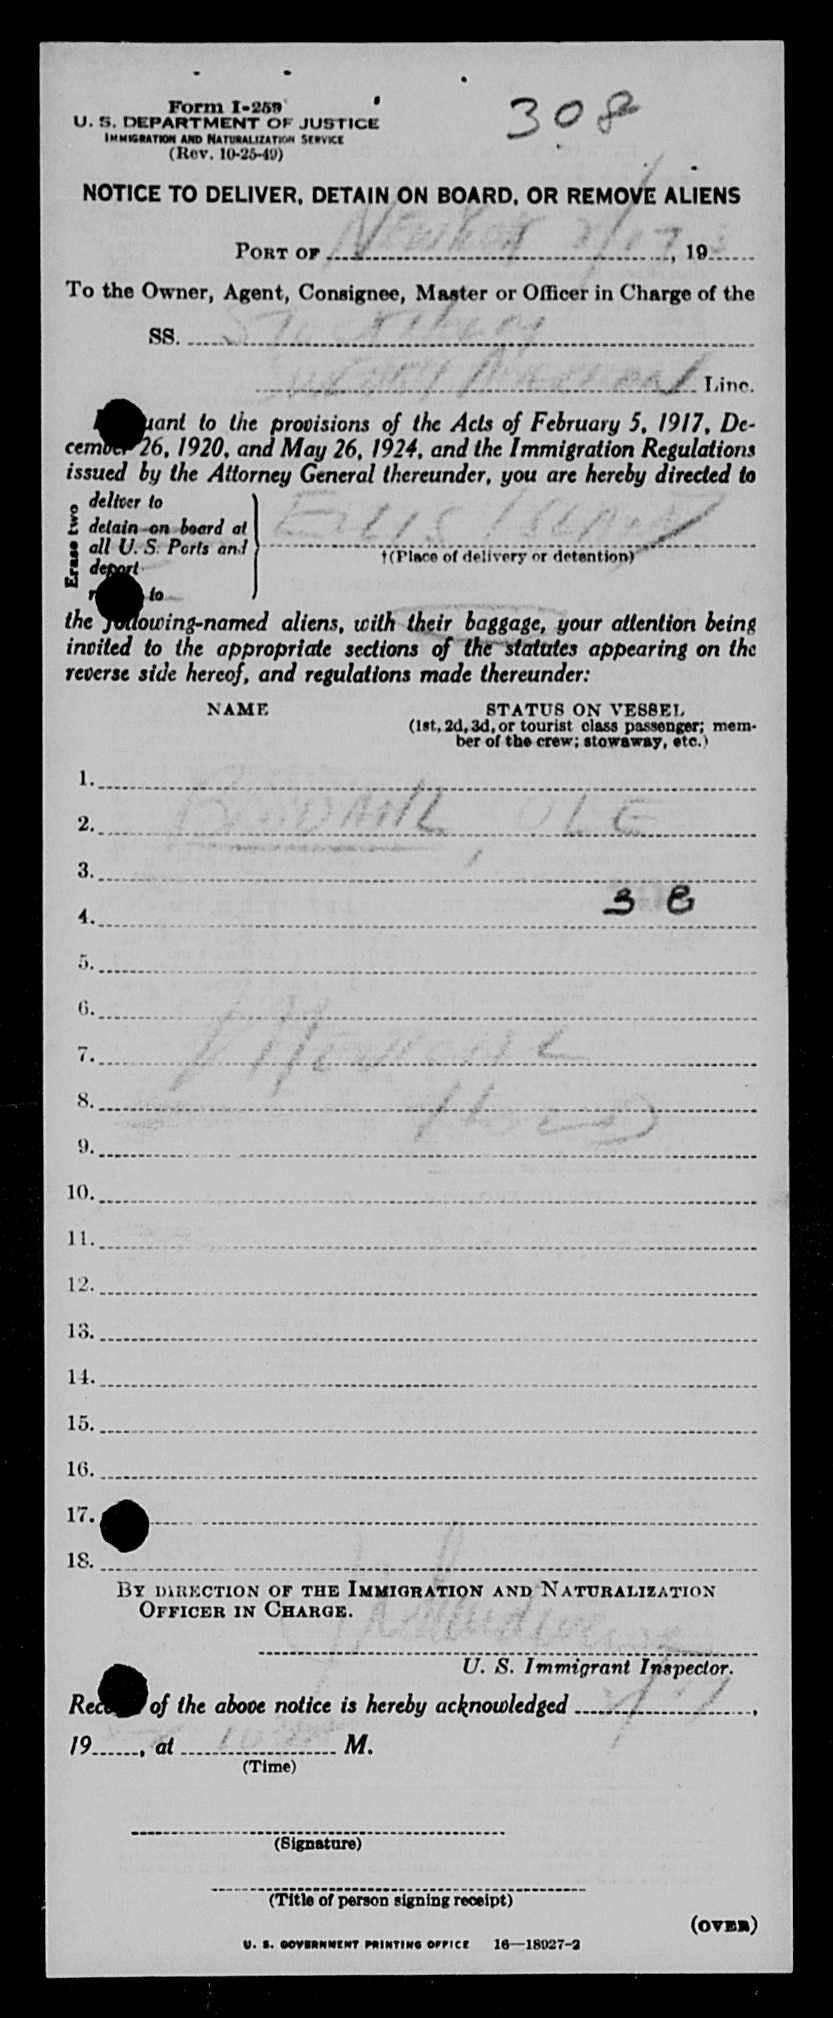 308
Form I-259
U. S. DEPARTMENT OF JUSTICE
IMMIGRATION AND NATURALIZATION SERVICE
(Rev. 10-25-49)
NOTICE TO DELIVER, DETAIN ON BOARD, OR REMOVE ALIENS
PORT OF New York, 19
To the Owner, Agent, Consignee, Master or Officer in Charge of the
SS. Stockholm
Line.
uant to the provisions of the Acts of February 5, 1917, De-
cember 26, 1920, and May 26, 1924, and the Immigration Regulations
issued by the Attorney General thereunder, you are hereby directed to
Erase two
deliver to
detain on board at
all U. S. Ports and
deport
to
ELLIS ISLAND
†(Place of delivery or detention)
the following-named aliens, with their baggage, your attention being
invited to the appropriate sections of the statutes appearing on the
reverse side hereof, and regulations made thereunder:
NAME
STATUS ON VESSEL
(1st, 2d, 3d, or tourist class passenger; mem-
ber of the crew; stowaway, etc.)
1.
2. OLE
3.
3 8
4.
5.
6.
7.
8.
9.
10.
11.
12.
13.
14.
15.
16.
17.
18.
BY DIRECTION OF THE IMMIGRATION AND NATURALIZATION
OFFICER IN CHARGE.
U. S. Immigrant Inspector.
of the above notice is hereby acknowledged ,
19 , at 10 M.
(Time)
(Signature)
(Title of person signing receipt)
(OVER)
U. S. GOVERNMENT PRINTING OFFICE 16—18027-2